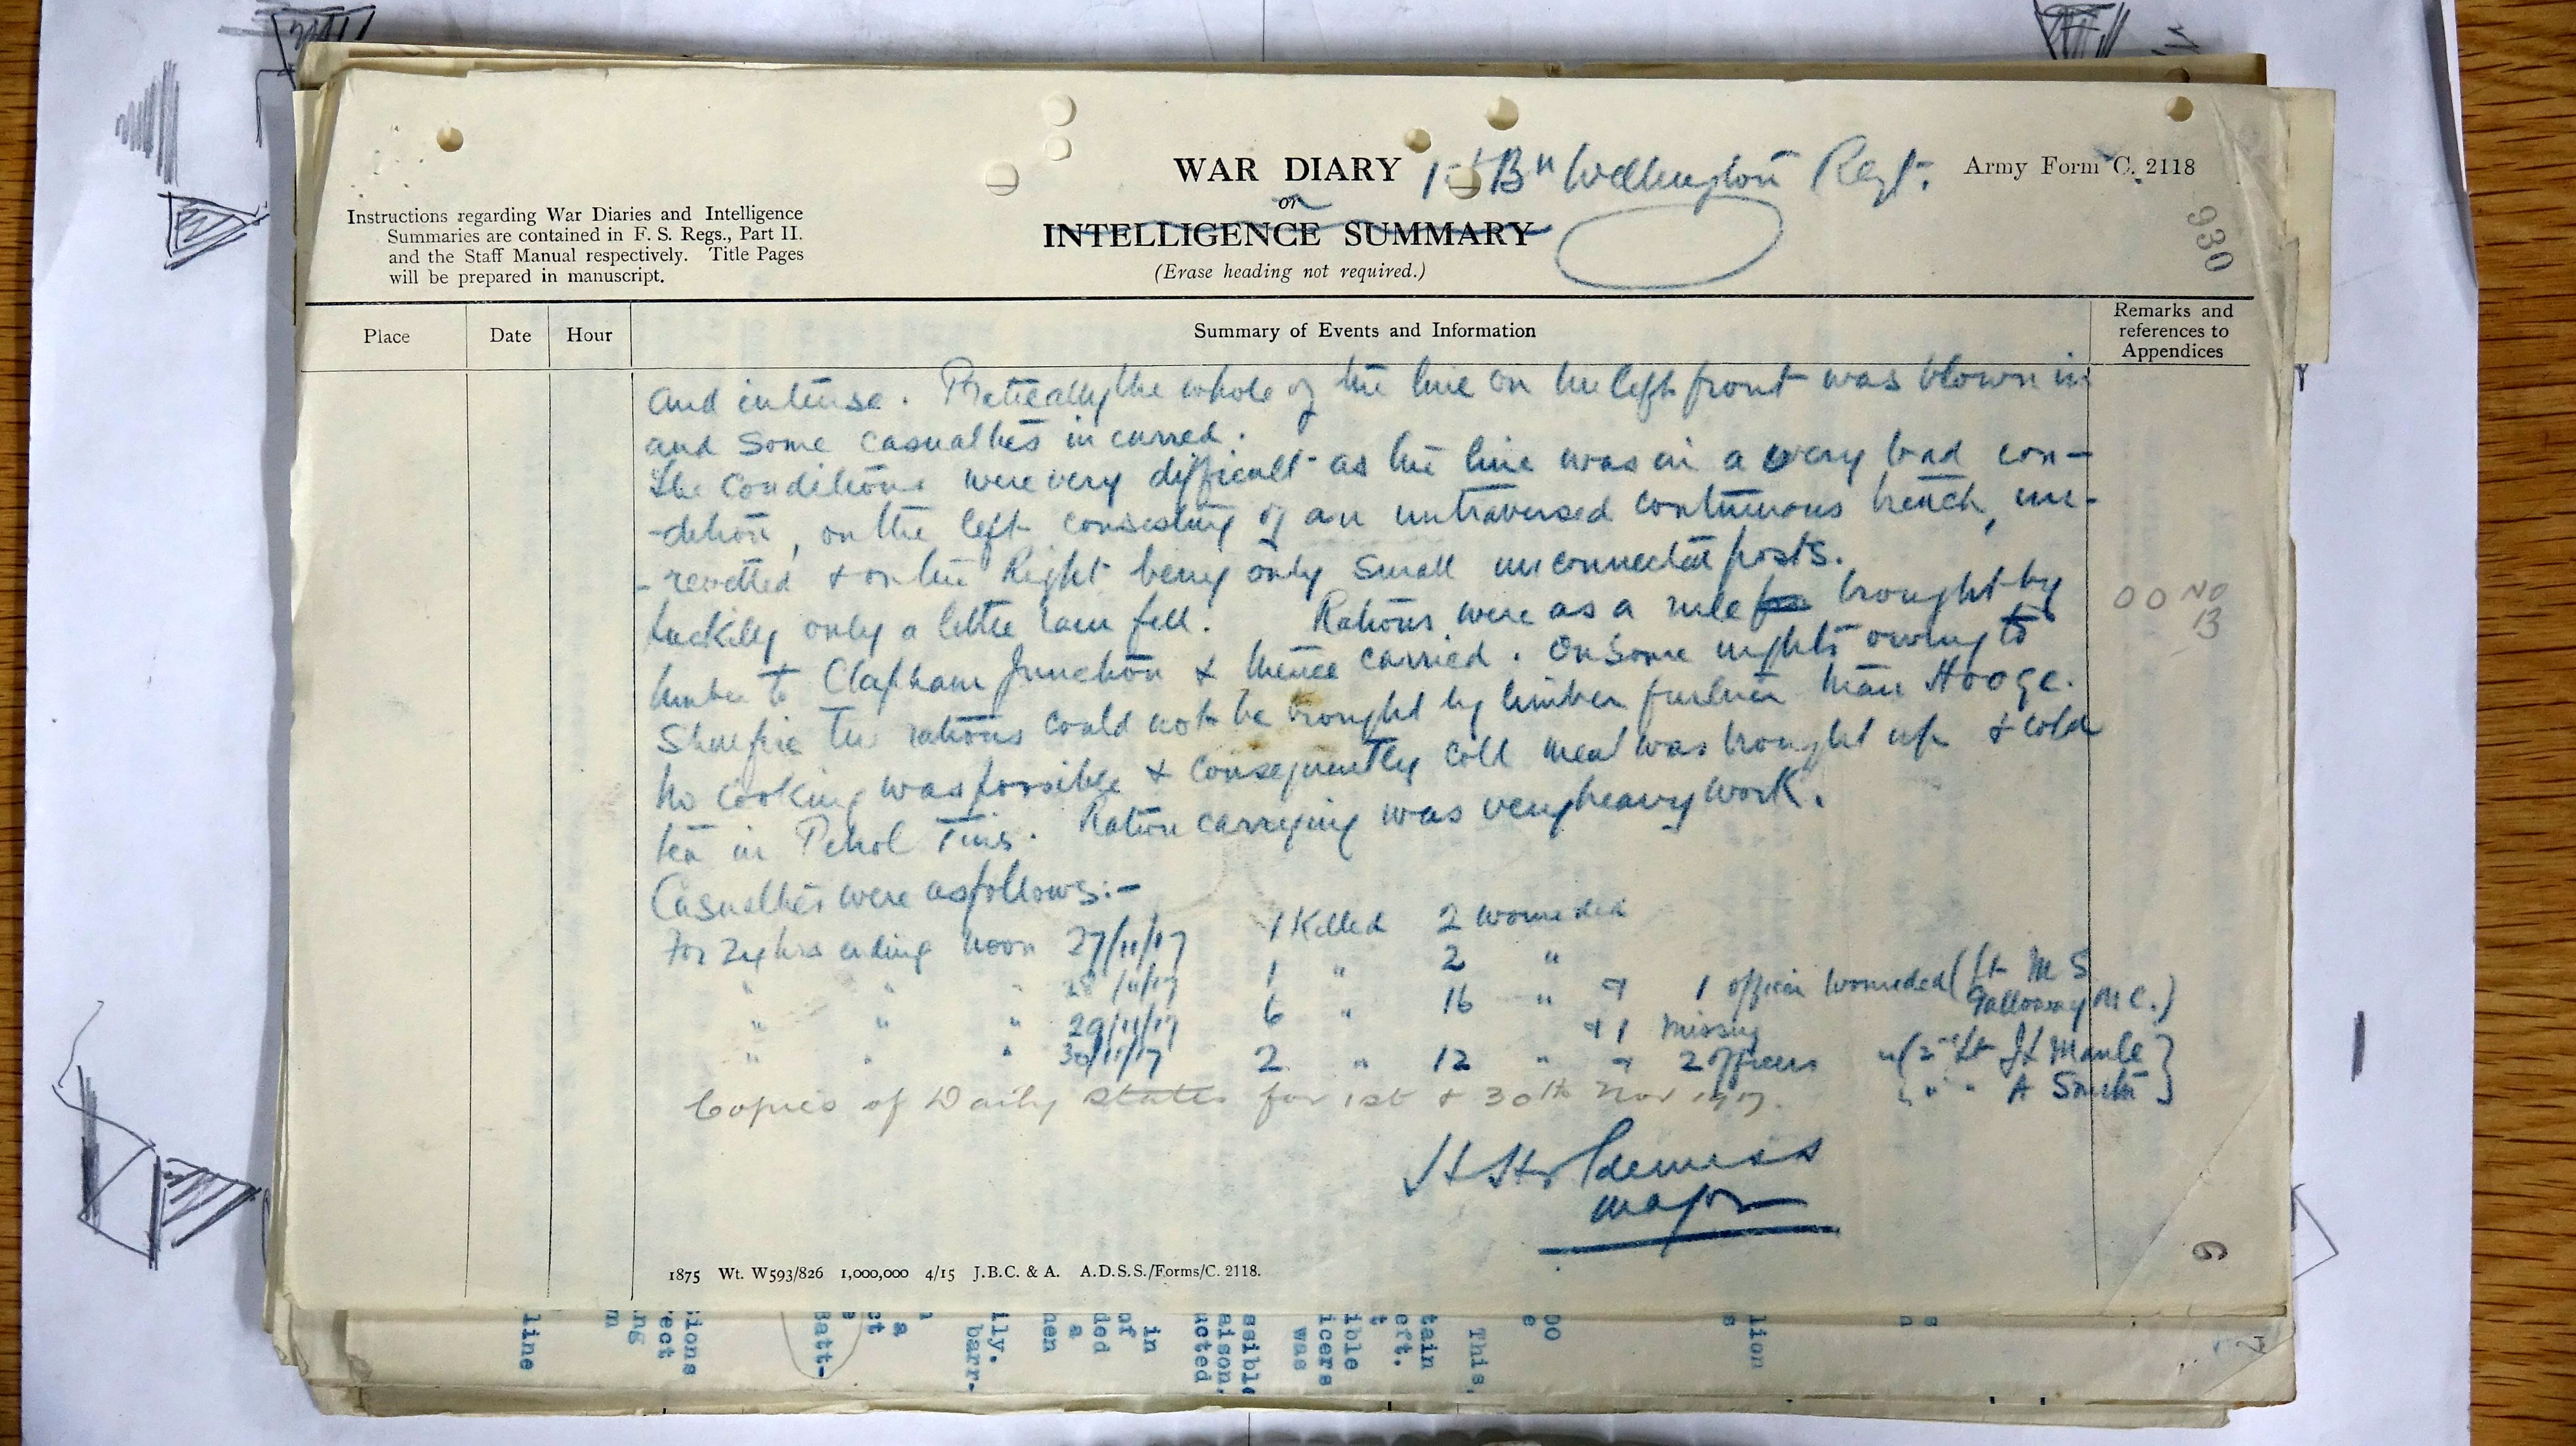 WAR DIARY 1st Bn Wellington Regt. Army Form C. 2118
or
INTELLIGENCE SUMMARY
(Erase heading not required.)
930
Instructions regarding War Diaries and Intelligence
Summaries are contained in F. S. Regs., Part II.
and the Staff Manual respectively. Title Pages
will be prepared in manuscript.
Place Date Hour Summary of Events and Information Remarks and
references to
Appendices
and intense. Practically the whole of the line on the left front was blown in
and some casualties incurred.
The conditions were very difficult as the line was in a very bad con-
-dition, on the left consisting of an untraversed continuous trench, un-
-revetted & on the Right being only small unconnected posts.
Luckily only a little rain fell. Rations were as a rule brought by
limber to Clapham Junction & thence carried. On some nights owing to
Shellfire the rations could not be brought by limber further than Hooge.
No cooking was possible & consequently cold meat was brought up & cold
tea in Petrol Tins. Ration carrying was very heavy work.
OO NO
13
Casualties were as follows:-
For 24 hrs ending noon 27/11/17 1 Killed 2 wounded
" " " 28/11/17 1 " 2 "
" " " 29/11/17 6 " 16 " + 1 officer wounded (Lt M S
Galloway M.C.)
+ 1 missing
" " " 30/11/17 2 " 12 " + 2 officers " (2nd Lt Maule }
" " A Smith }
Copies of Daily States for 1st & 30th Nov 1917.
Major
1875 Wt. W593/826 1,000,000 4/15 J.B.C. & A. A.D.S.S./Forms/C. 2118.
6
line
ng
m
sions
rect
Batt-
e
ct
a
ily.
barr-
hen
a
ded
of
in
ucted
aison.
ssible
was
icers
ible
t
eft.
tain
This,
DO
e
lion
s
s
n